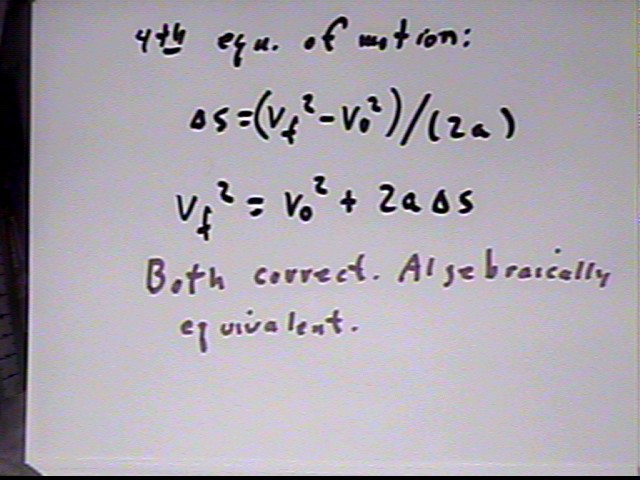 4th equ. of motion:
Δs=(v_f²-v₀²)/(2a)
v_f² = v₀² + 2a Δs
Both correct. Algebraically
equivalent.